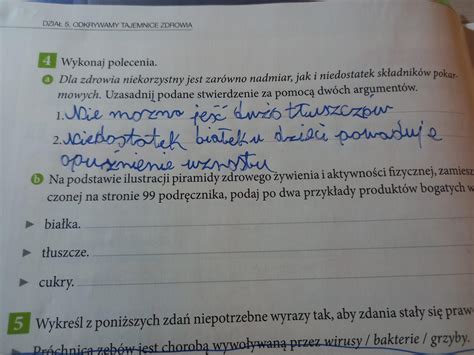 DZIAŁ 5. ODKRYWAMY TAJEMNICE ZDROWIA
4 Wykonaj polecenia.
a Dla zdrowia niekorzystny jest zarówno nadmiar, jak i niedostatek składników pokar-
mowych. Uzasadnij podane stwierdzenie za pomocą dwóch argumentów.
1. Nie można jeść dużo tłuszczów
2. Niedostatek białek u dzieci powoduje
opuźnienie wzrostu
b Na podstawie ilustracji piramidy zdrowego żywienia i aktywności fizycznej, zamiesz
czonej na stronie 99 podręcznika, podaj po dwa przykłady produktów bogatych w
▶ białka.
▶ tłuszcze.
▶ cukry.
5 Wykreśl z poniższych zdań niepotrzebne wyrazy tak, aby zdania stały się praw
Próchnica zębów jest chorobą wywoływaną przez wirusy / bakterie / grzyby.